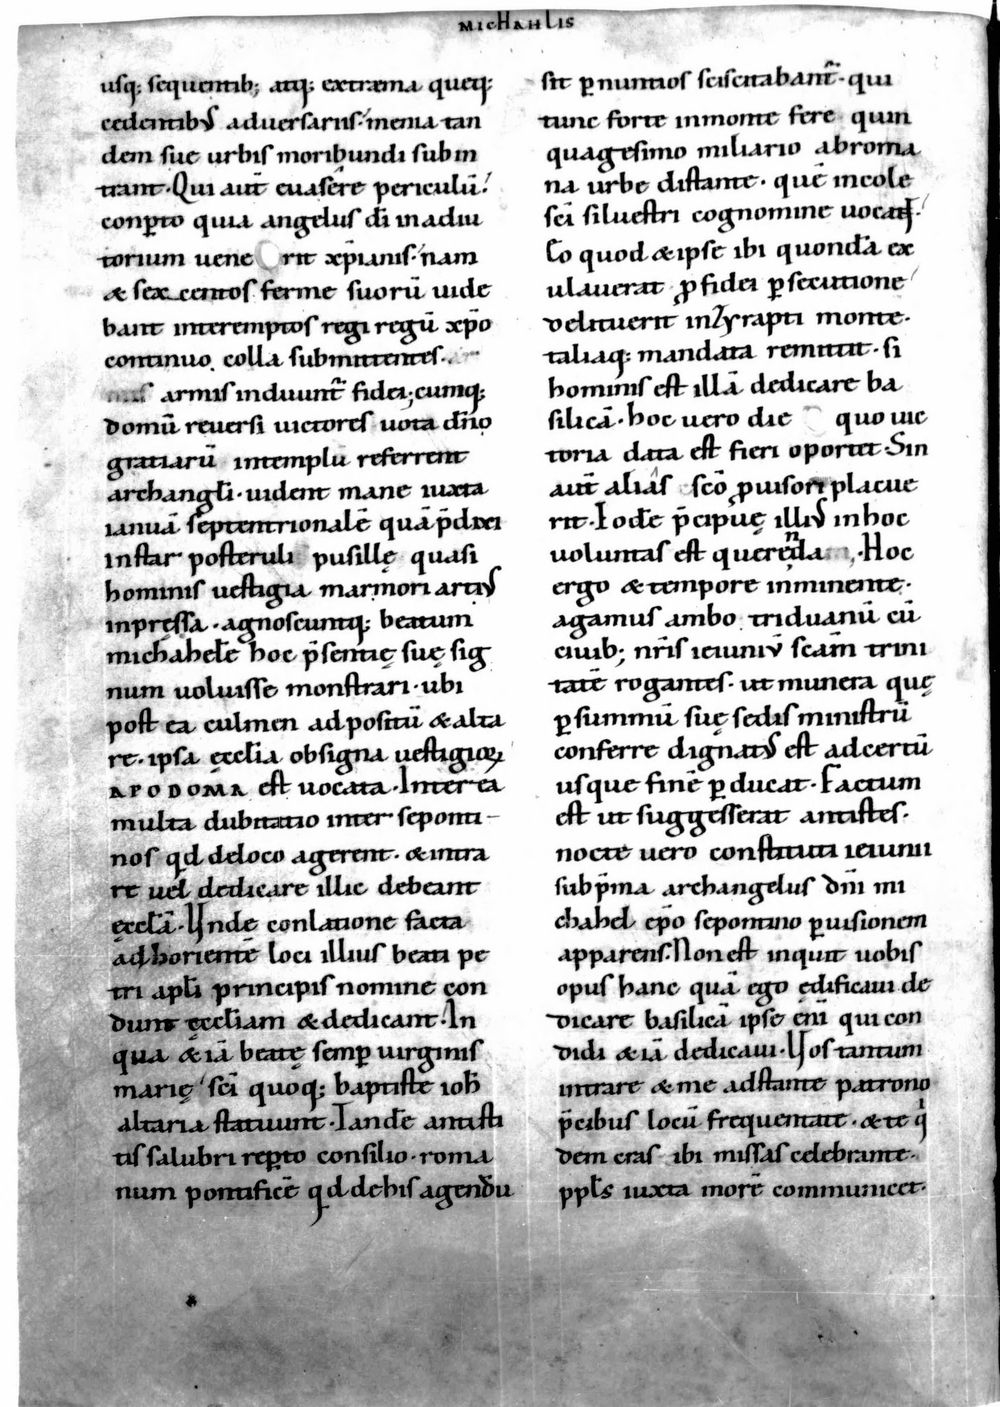 MICHAHLIS
usq; sequentib; atq; extrema queq;
cedentibus adversariis. menia tan
dem sue urbis moribundi subin
trant. Qui aut̄ euasere periculū.
conp̱to quia angelus dī in adiu
torium uene rit xp̄ianis. nam
& sex centos ferme suorū uide
bant interemptos regi regū xp̄o
continuo colla submittentes.
armis induunt̄ fidei; cumq;
domū reuersi uictores uota dn̄o
gratiarū intemplū referrent
archangl̄i. uident mane iuxta
ianuā septentrionalē quā p̄dixi
instar posteruli pusillę quasi
hominis uestigia marmori artius
inpręssa. agnoscuntq; beatum
michahelē hoc p̄sentię suę sig
num uoluisse monstrari. ubi
post ea culmen adpositū & alta
re. ipsa ęcclīa obsigna uestigioꝝ
APODOMA est uocata. Inter ea
multa dubitatio inter seponti-
nos qd deloco agerent. & intra
re uel dedicare illic debeant
ęcclā. Unde conlatione facta
adhorientē loci illius beati pe
tri apl̄i principis nomine con
dunt ęccliam & dedicant. In
qua & iā beatę semp̱ uirginis
marię sc̄i quoq; baptistę ioh̄
altaria statuunt. Tandē antisti
tis salubri rep̱to consilio. roma
num pontificē qd dehis agendū
sit p̱nuntios sciscitabant̄. qui
tunc forte inmonte fere quin
quagesimo miliario abroma
na urbe distante. quē incole
sc̄i siluestri cognomine uocant.
Eo quod & ipse ibi quondā ex
ulauerat ꝓfidei p̱secutione
delituerit inzyrapti monte.
taliaq; mandata remittit. si
hominis est illā dedicare ba
silicā. hoc uero die quo uic
toria data est fieri oportet Sin
aut̄ aliás sc̄o ꝓuisori placue
rit. Iodē p̄cipuę illius inhoc
uoluntas est querenda. Hoc
ergo & tempore inminente.
agamus ambo triduanū cū
ciuib; nr̄is ieiuniū scām trini
tatē rogantes. ut munera quę
p̱summū suę sedis ministrū
conferre dignatus est adcertū
usque finē p̱ducat. Factum
est ut suggesserat antistes.
nocte uero constituti ieiunii
subp̄ma archangelus dn̄i mi
chahel ep̄o sepontino p̱uisionem
apparens. Non est inquit uobis
opus hanc quā ego edificaui de
dicare basilicā ipse eni̅ qui con
didi & iā dedicaui. Uos tantum
intrare & me adstante patrono
p̄cibus locū frequentate. & te qͥ
dem cras ibi missas celebrante.
ppl̄s iuxta morē communicet.